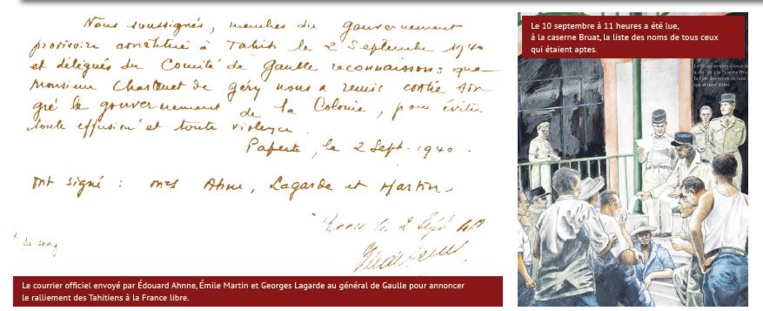 Nous soussignés, membres du gouvernement
provisoire constitué à Tahiti le 2 Septembre 1940
et délégués du Comité de Gaulle reconnaissons que
Monsieur Chastenet de géry nous a remis contre son
gré le gouvernement de la Colonie, pour éviter
toute effusion* et toute violence
Papeete, le 2 Sept. 1940.
Ont signé : mes Ahne, Lagarde et Martin.
le 2 Sept 40
* de sang
Le courrier officiel envoyé par Édouard Ahnne, Émile Martin et Georges Lagarde au général de Gaulle pour annoncer
le ralliement des Tahitiens à la France libre.
Le 10 septembre à 11 heures a été lue,
à la caserne Bruat, la liste des noms de tous ceux
qui étaient aptes.